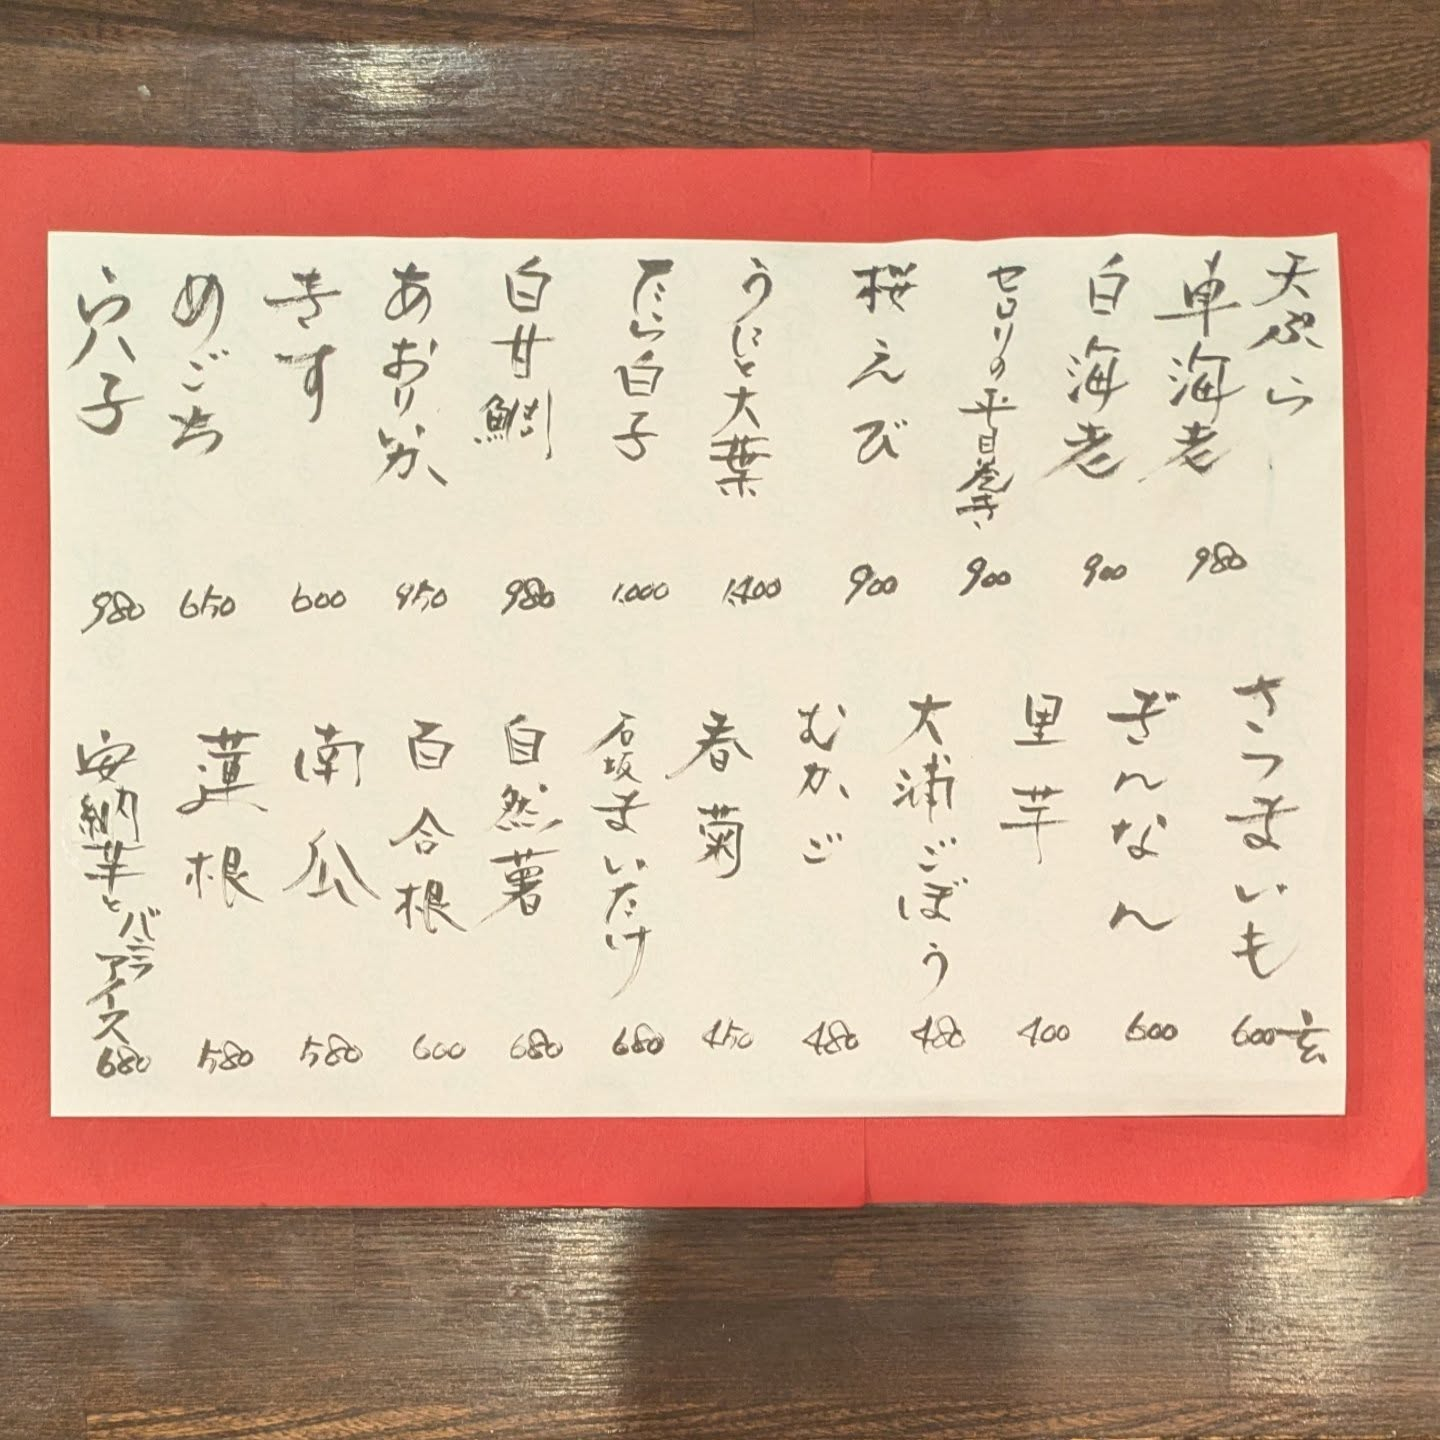 天ぷら
車海老 980
白海老 900
セロリの平目巻き 900
桜えび 900
うにと大葉 1,400
たら白子 1,000
白甘鯛 980
あおりいか 950
きす 600
めごち 650
穴子 980
さつまいも 600
ぎんなん 600
里芋 400
大浦ごぼう 480
むかご 480
春菊 450
石坂まいたけ 680
自然薯 680
百合根 600
南瓜 580
蓮根 580
安納芋とバニラアイス 680
玄